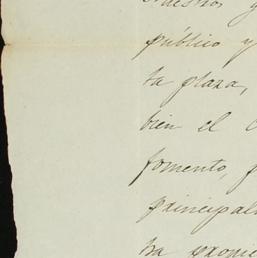 público y
ta plaza,
bien el
fomento, p
principal
ha propie